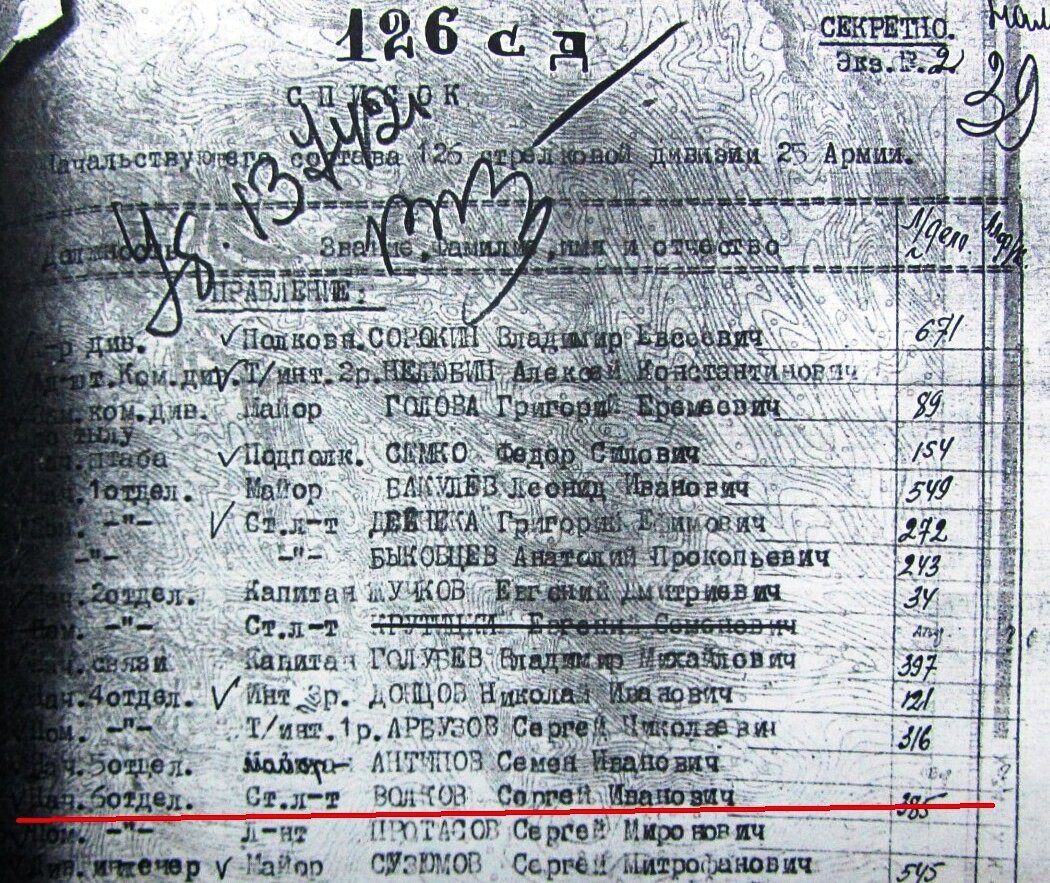 126 сд
СЕКРЕТНО.
Экз.№.2
39
СПИСОК
Начальствующего состава 126 стрелковой дивизии 25 Армии.
Должность Звание, фамилия, имя и отчество № дела
УПРАВЛЕНИЕ:
К-р див. Полковн. СОРОКИН Владимир Евсеевич 671
Ад-нт.Ком.див. Т/инт.2р. НЕЛЮБИН Алексей Константинович
Зам.ком.див. Майор ГОЛОВА Григорий Еремеевич 89
по тылу
Нач.штаба Подполк. СЕМКО Федор Силович 154
Нач.1отдел. Майор БАКУЛЕВ Леонид Иванович 549
Пом. -"- Ст.л-т ДЕЙНЕКА Григорий Ефимович 272
-"- -"- БЫКОВЦЕВ Анатолий Прокопьевич 243
Нач.2отдел. Капитан ЖУЧКОВ Евгений Дмитриевич 34
Пом. -"- Ст.л-т Семенович
Нач.связи Капитан ГОЛУБЕВ Владимир Михайлович 397
Нач.4отдел. Инт р. ДОНЦОВ Николай Иванович 121
Пом. -"- Т/инт.1р. АРБУЗОВ Сергей Николаевич 316
Нач.5отдел. АНТИПОВ Семен Иванович
Нач.6отдел. Ст.л-т ВОЛКОВ Сергей Иванович 385
Пом. -"- Л-нт ПРОТАСОВ Сергей Миронович
Див.инженер Майор СУЗЮМОВ Сергей Митрофанович 545